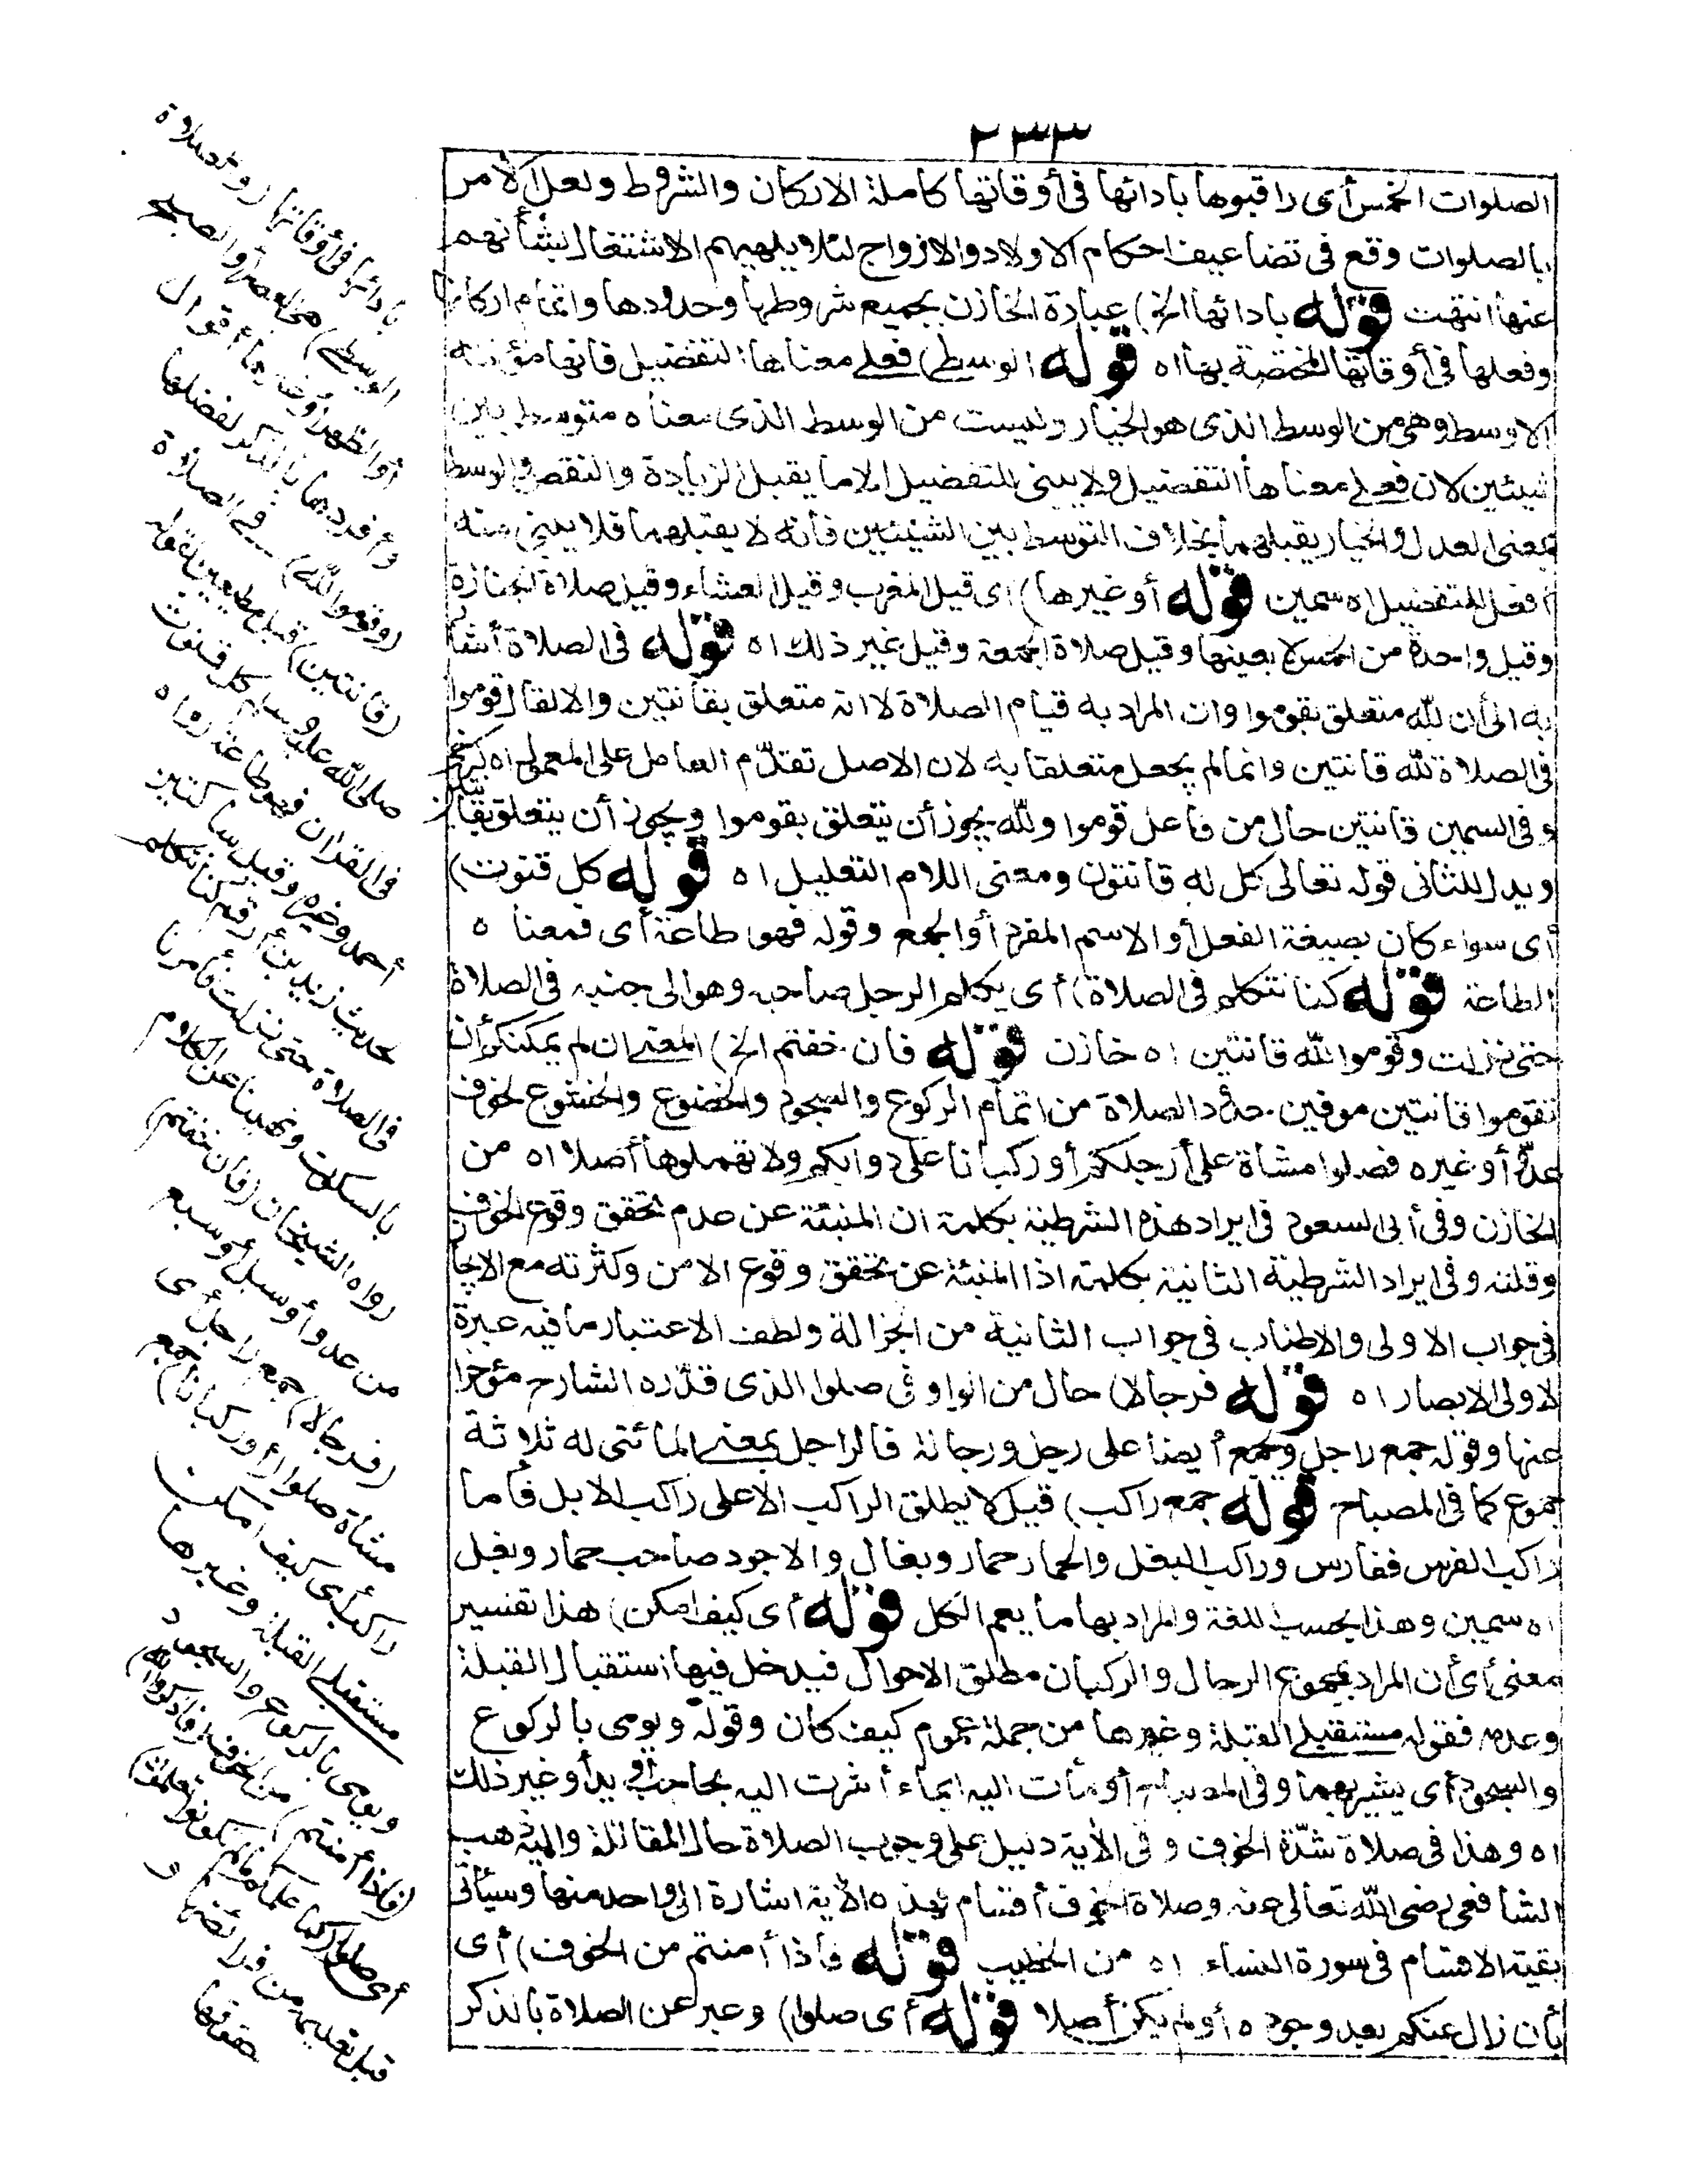 ٢٣٣
الصلوات الخمس أى راقبوها بادائها فى أوقاتها كاملة الاركان والشروط ولعل الأمر
بالصلوات وقع فى تضاعيف احكام الاولاد والازواج لئلا يلهيهم الاشتغال بشأنهم
عنها انتهت قوله بادائها الخ) عبارة الخازن بجميع شروطها وحدودها واتمام اركانها
وفعلها فى أوقاتها المختصة بها اه قوله الوسطى) فعلى معناها التفضيل فانها مؤنثة
الاوسط وهى من الوسط الذى هو الخيار وليست من الوسط الذى معناه متوسط بين
شيئين لان فعلى معناها التفضيل ولا يبنى للتفضيل الا ما يقبل الزيادة والنقص والوسط
بمعنى العدل والخيار يقبلهما بخلاف التوسط بين الشيئين فانه لا يقبلهما فلا يبنى منه
أفعل التفضيل اه سمين قوله أو غيرها) اى قيل المغرب وقيل العشاء وقيل صلاة الجنازة
وقيل واحدة من الخمس لا بعينها وقيل صلاة الجمعة وقيل غير ذلك اه قوله فى الصلاة أشار
به الى أن لله متعلق بقوموا وان المراد به قيام الصلاة لا انه متعلق بقانتين والا لقال قوموا
فى الصلاة لله قانتين وانما لم يجعل متعلقا به لان الاصل تقدّم العامل على المعمول اه كرخى
وفى السمين قانتين حال من فاعل قوموا ولله يجوز أن يتعلق بقوموا ويجوز أن يتعلق بقانتين
ويدل للثانى قوله تعالى كل له قانتون ومعنى اللام التعليل اه قوله كل قنوت)
أى سواء كان بصيغة الفعل أو الاسم المفرد أو الجمع وقوله فهو طاعة أى فمعناه
الطاعة قوله كنا نتكلم فى الصلاة) أى يكلم الرجل صاحبه وهو الى جنبه فى الصلاة
حتى نزلت وقوموا لله قانتين اه خازن قوله فان خفتم الخ) المعنى ان لم يمكنكم أن
تقوموا قانتين موفين حدود الصلاة من اتمام الركوع والسجود والخضوع والخشوع لخوف
عدوّ أو غيره فصلوا مشاة على أرجلكم أو ركبانا على دوابكم ولا تهملوها أصلا اه من
الخازن وفى أبى السعود فى ايراد هذه الشرطية بكلمة ان المنبئة عن عدم تحقق وقوع الخوف
وقلته وفى ايراد الشرطية الثانية بكلمة اذا المنبئة عن تحقق وقوع الامن وكثرته مع الايجاز
فى جواب الاولى والاطناب فى جواب الثانية من الجزالة ولطف الاعتبار ما فيه عبرة
لاولى الابصار اه قوله فرجالا) حال من الواو فى صلوا الذى قدّره الشارح مؤخرا
عنها وقوله جمع راجل ويجمع أيضا على رجل ورجالة فالراجل بمعنى الماشى له ثلاثة
جموع كما فى المصباح قوله جمع راكب) قيل لا يطلق الراكب الا على راكب الابل فأما
راكب الفرس ففارس وراكب البغل والحمار حمار وبغال والاجود صاحب حمار وبغل
اه سمين وهذا بحسب اللغة والمراد بها ما يعم الكل قوله أى كيف امكن) هذا تفسير
معنى أى أن المراد بمجموع الرجال والركبان مطلق الاحوال فيدخل فيها استقبال القبلة
وعدمه فقوله مستقبلى القبلة وغيرها من جملة عموم كيف كان وقوله ويومى بالركوع
والسجود أى يشير بهما وفى المصباح أومأت اليه ايماء أشرت اليه بحاجب أو يد أو غير ذلك
اه وهذا فى صلاة شدّة الخوف وفى الآية دليل على وجوب الصلاة حال المقاتلة واليه ذهب
الشافعى رضى الله تعالى عنه وصلاة الخوف أقسام فهذه الآية اشارة الى واحد منها وسيأتى
بقية الاقسام فى سورة النساء اه من الخطيب قوله فاذا أمنتم من الخوف) أى
بأن زال عنكم بعد وجوده أو لم يكن أصلا قوله أى صلوا) وعبر عن الصلاة بالذكر
بادائها فى أوقاتها (والصلاة
الوسطى) هى العصر أو الصبح
أو الظهر أو غيرها أقوال
وأفردها بالذكر لفضلها
(وقوموا لله) فى الصلاة
(قانتين) قيل مطيعين لقوله
صلى الله عليه وسلم كل قنوت
فى القرآن فهو طاعة رواه
أحمد وغيره وقيل ساكتين
لحديث زيد بن أرقم كنا نتكلم
فى الصلاة حتى نزلت فأمرنا
بالسكوت ونهينا عن الكلام
رواه الشيخان (فان خفتم)
من عدو أو سيل أو سبع
(فرجالا) جمع راجل أى
مشاة صلوا (أو ركبانا) جمع
راكب أى كيف امكن
مستقبلى القبلة وغيرها
ويومى بالركوع والسجود
(فاذا أمنتم) من الخوف (فاذكروا الله)
أى صلوا (كما علمكم ما لم تكونوا تعلمون)
قبل تعليمه من فرائضها و
حقوقها